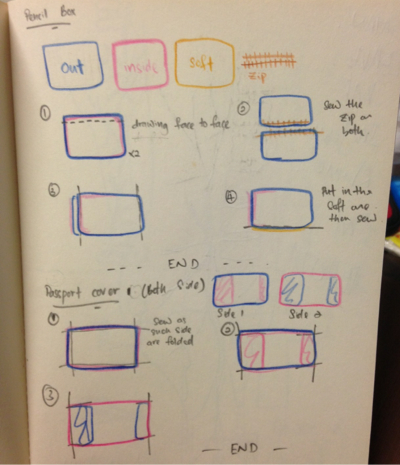 Pencil Box
out
inside
soft
Zip
①
drawing face to face
x2
②
Sew the
Zip on
both
③
④
Put in the
soft one
then sew
--- END ---
Passport cover (both side)
Side 1
Side 2
①
Sew as
such side
are folded
②
③
— END —